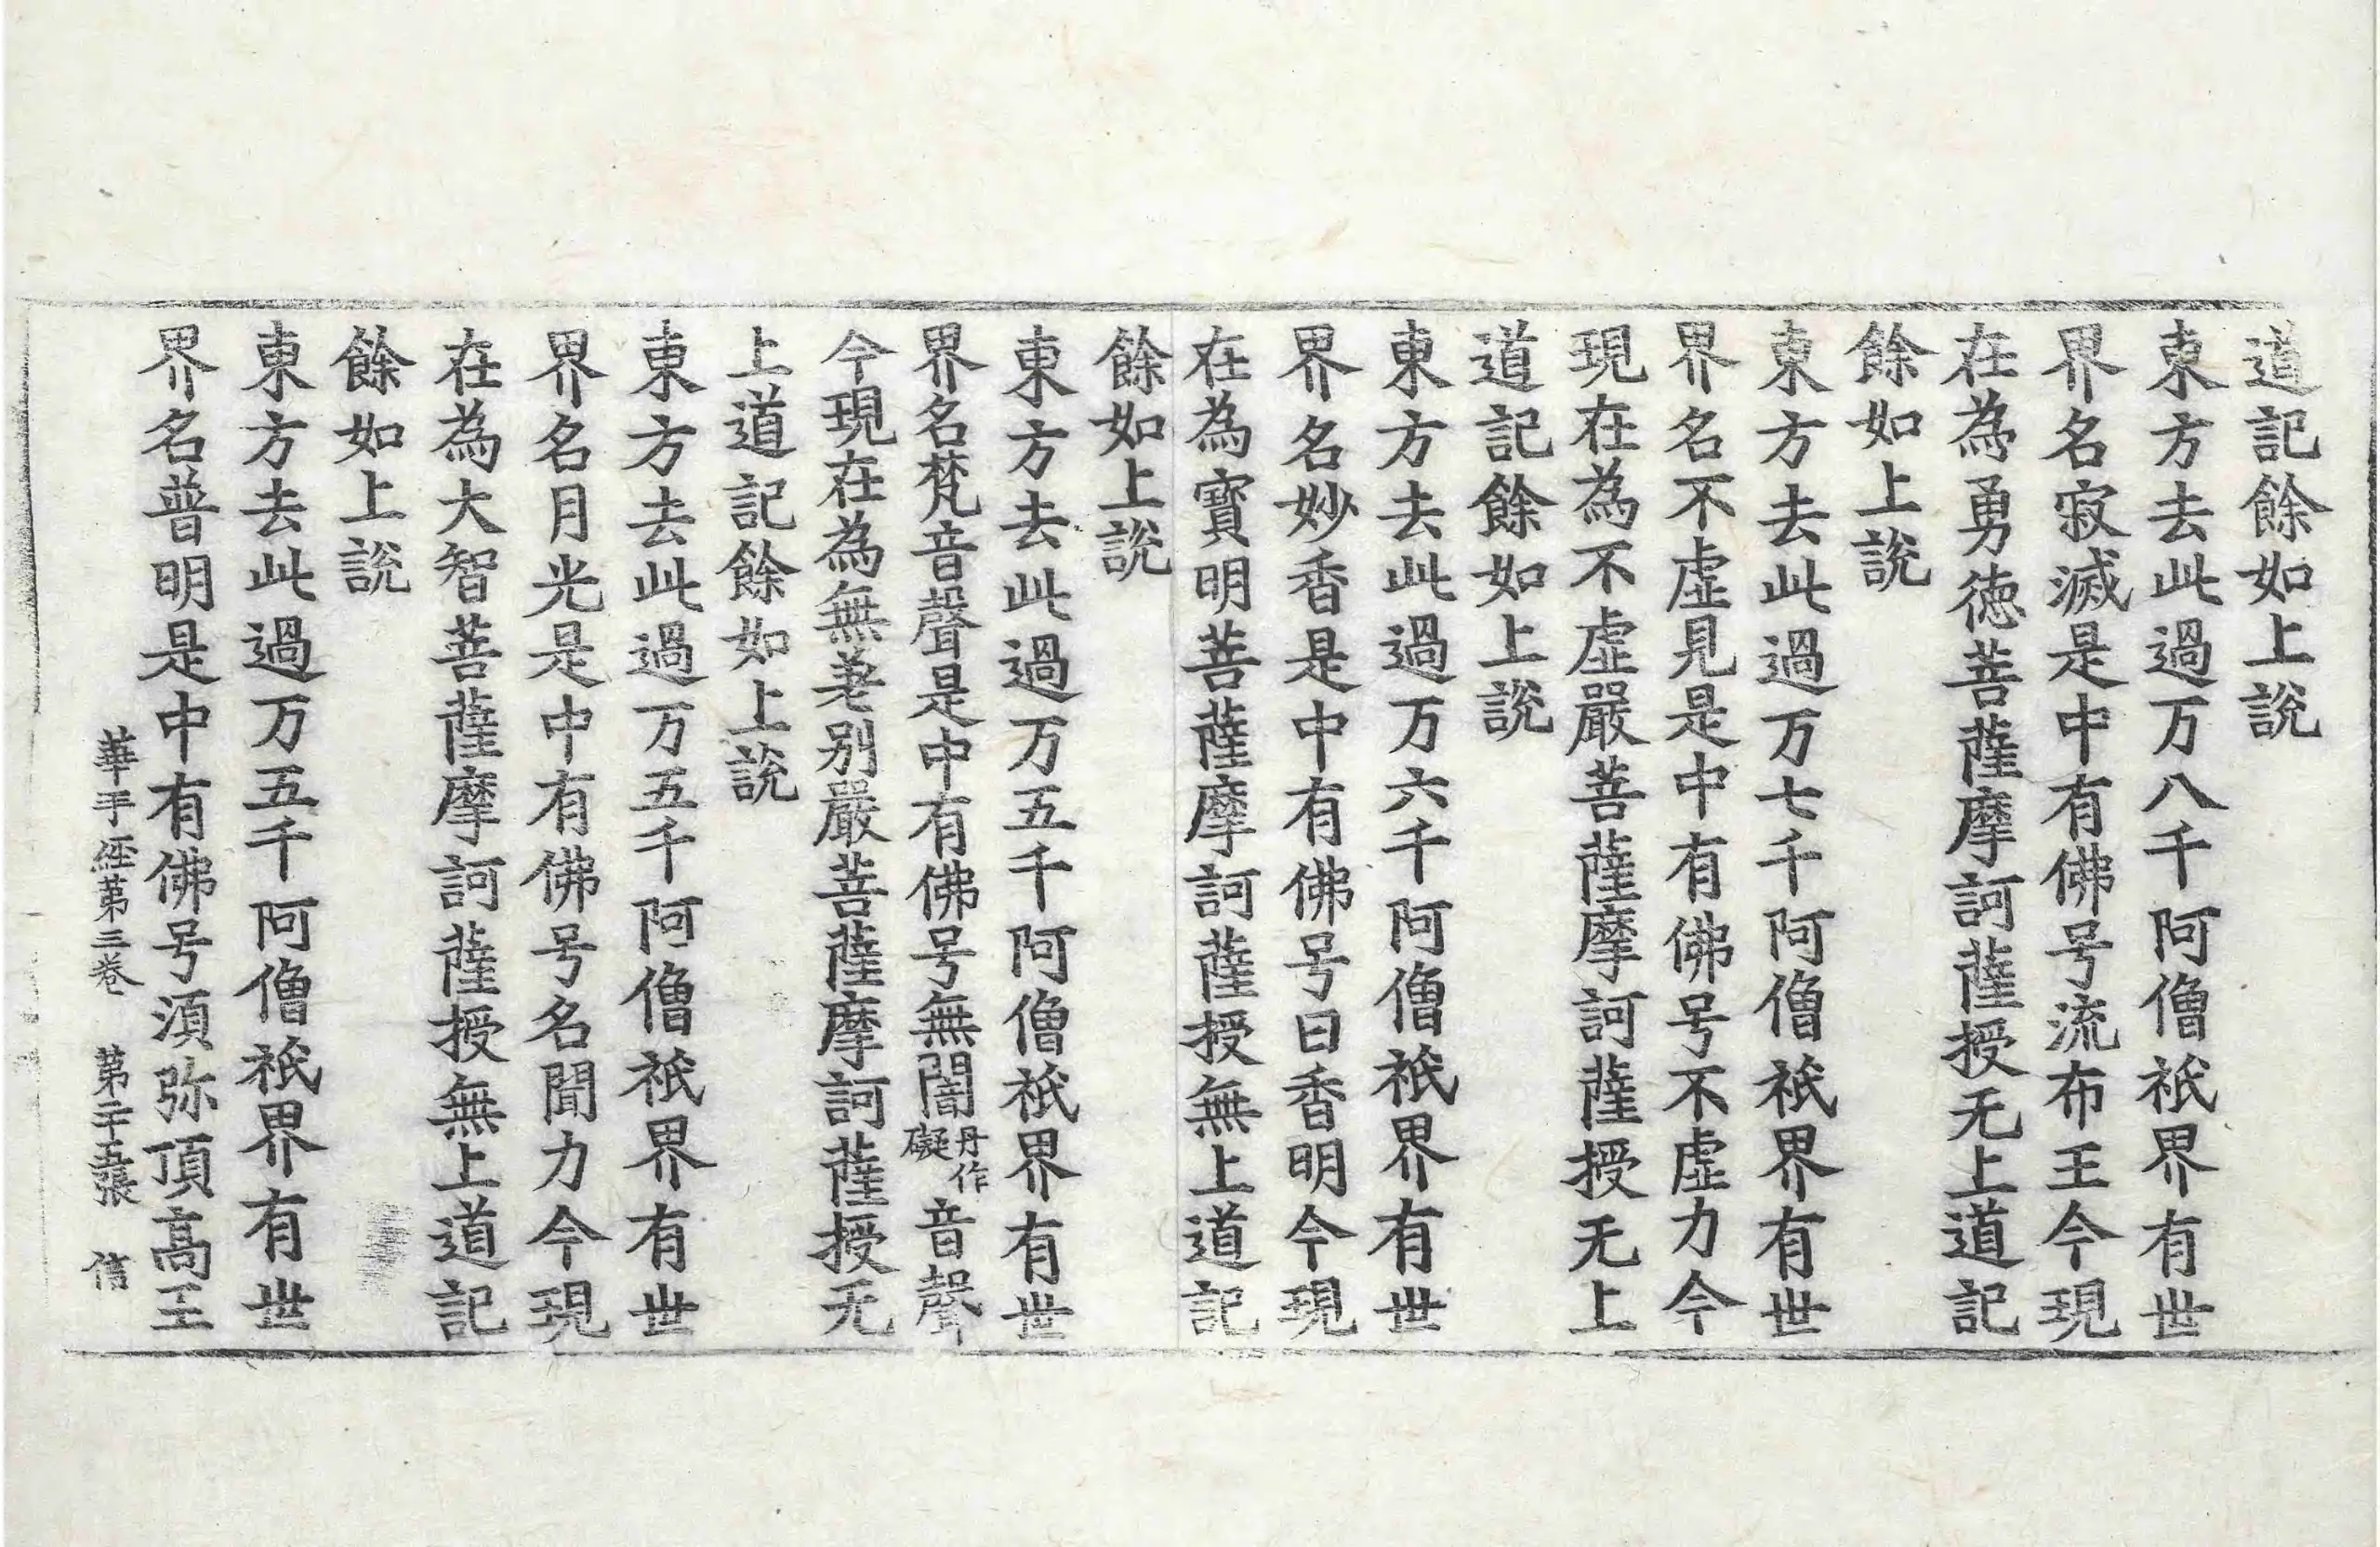 道記餘如上說
東方去此過万八千阿僧祇界有世
界名寂滅是中有佛号流布王今現
在為勇德菩薩摩訶薩授无上道記
餘如上說
東方去此過万七千阿僧祇界有世
界名不虛見是中有佛号不虛力今
現在為不虛嚴菩薩摩訶薩授无上
道記餘如上說
東方去此過万六千阿僧祇界有世
界名妙香是中有佛号曰香明今現
在為寶明菩薩摩訶薩授無上道記
餘如上說
東方去此過万五千阿僧祇界有世
界名梵音聲是中有佛号無闇丹作礙音聲
今現在為無差別嚴菩薩摩訶薩授无
上道記餘如上說
東方去此過万五千阿僧祇界有世
界名月光是中有佛号名聞力今現
在為大智菩薩摩訶薩授無上道記
餘如上說
東方去此過万五千阿僧祇界有世
界名普明是中有佛号須弥頂高王
華手經第三卷 第二十五張 信